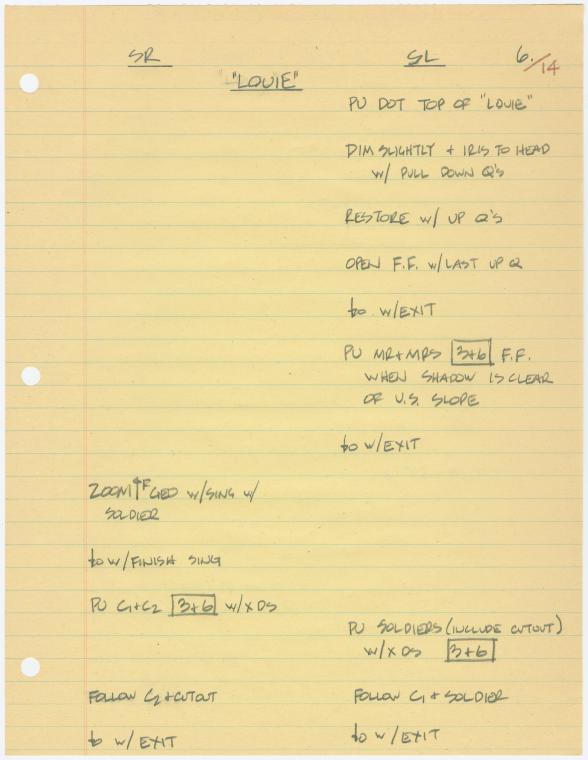 SR SL 6./14
"LOUIE"
PU DOT TOP OF "LOUIE"
DIM SLIGHTLY + IRIS TO HEAD
W/ PULL DOWN Q'S
RESTORE W/ UP Q'S
OPEN F.F. W/LAST UP Q
bo W/EXIT
PU MR+MRS 3+6 F.F.
WHEN SHADOW IS CLEAR
OF U.S. SLOPE
bo W/EXIT
ZOOM↑F GEO W/SING W/
SOLDIER
bo W/FINISH SING
PU C1+C2 3+6 W/X DS
PU SOLDIERS (INCLUDE CUTOUT)
W/X DS 3+6
FOLLOW C2+CUTOUT FOLLOW C1 + SOLDIER
bo W/EXIT bo W/EXIT